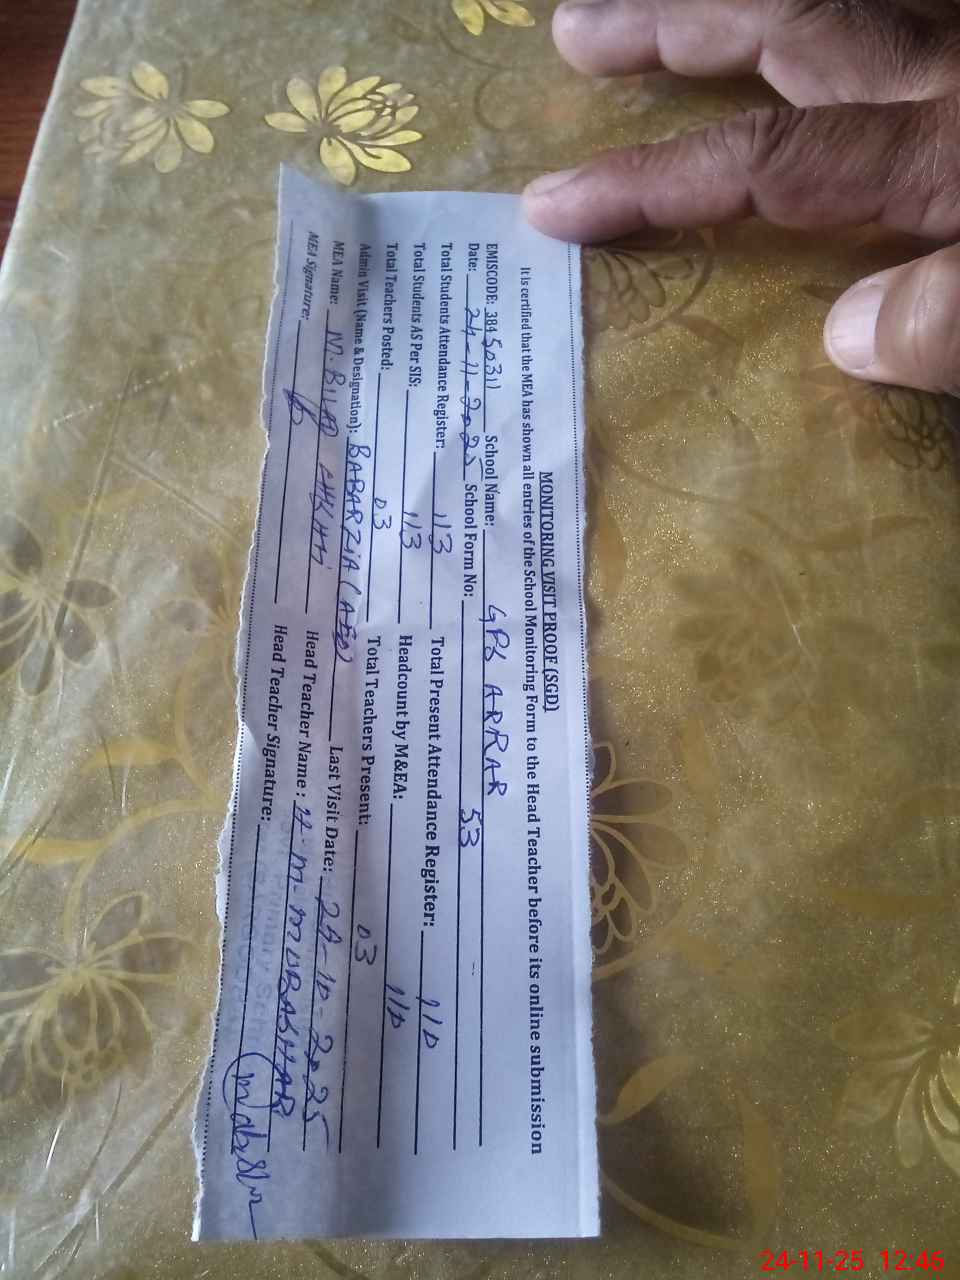 MONITORING VISIT PROOF (SGD)
It is certified that the MEA has shown all entries of the School Monitoring Form to the Head Teacher before its online submission
EMISCODE: 38450311 School Name: GPS ARRAR
Date: 24-11-2025 School Form No: 53
Total Students Attendance Register: 113 Total Present Attendance Register: 110
Total Students AS Per SIS: 113 Headcount by M&EA: 110
Total Teachers Posted: 03 Total Teachers Present: 03
Admin Visit (Name & Designation): BABARZIA (AEO) Last Visit Date: 24-10-2025
MEA Name: M. BILAL Head Teacher Name: M. MUBASHAR
MEA Signature: Head Teacher Signature:
24-11-25 12:46